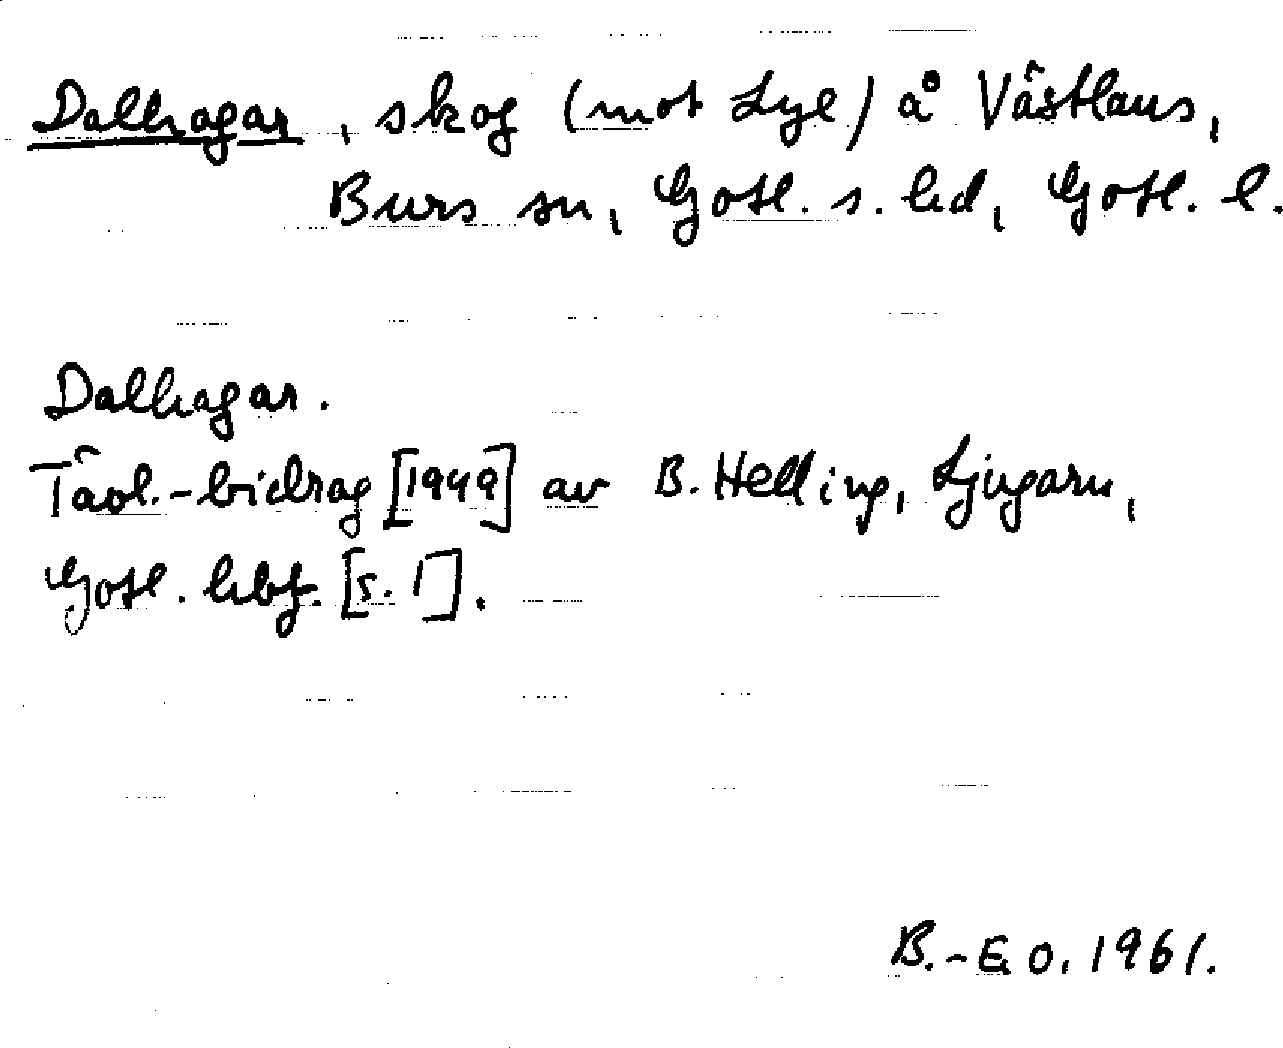 Dalhagar, skog (mot Lye) å Västlaus,
Burs sn, Gotl. s. hd, Gotl. l.
Dalhagar.
Tävl.-bidrag [1949] av B. Helling, Ljugarn,
Gotl. hbf. [s. 1].
B.-E.O. 1961.